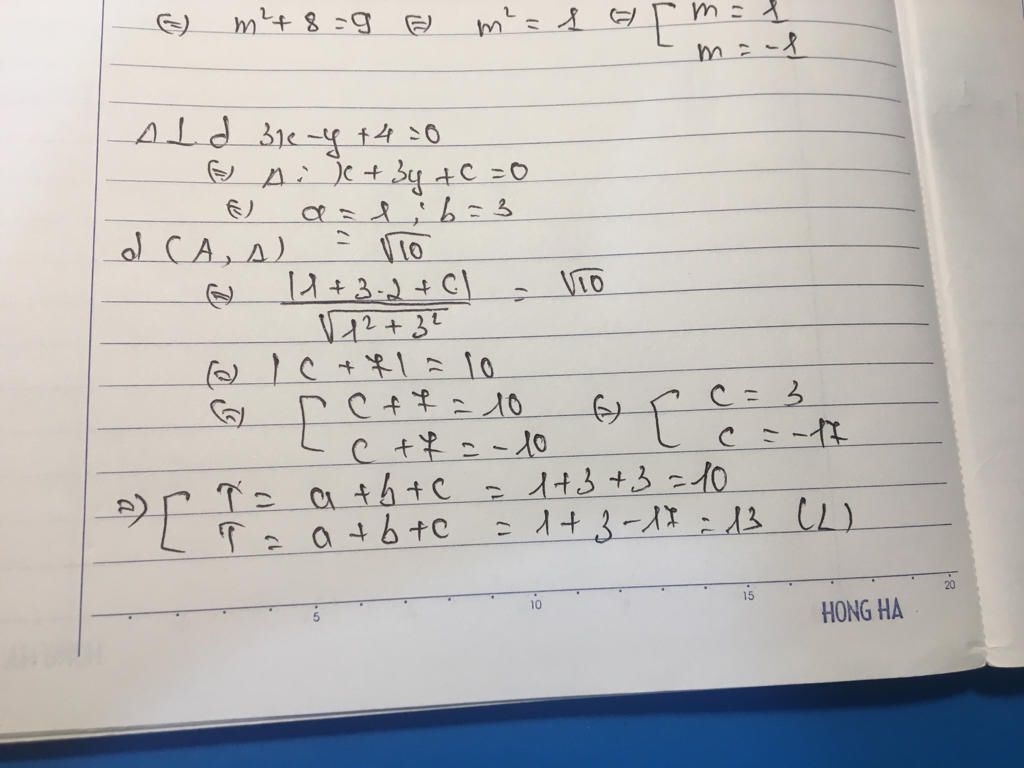 (=) m²+ 8 = 9 (=) m² = 1 (=) [ m = 1
m = -1
Δ⊥d 3x -y +4 =0
(=) Δ: x + 3y + c = 0
(=) a = 1 ; b = 3
d (A, Δ) = √10
(=) |1 + 3.2 + C| / √1² + 3² = √10
(=) | c + 7 | = 10
(=) [ c + 7 = 10 (=) [ c = 3
c + 7 = -10 c = -17
=) [ T = a + b + c = 1+3+3 = 10
T = a + b + c = 1 + 3 - 17 = 13 (L)
5 10 15 20
HONG HA